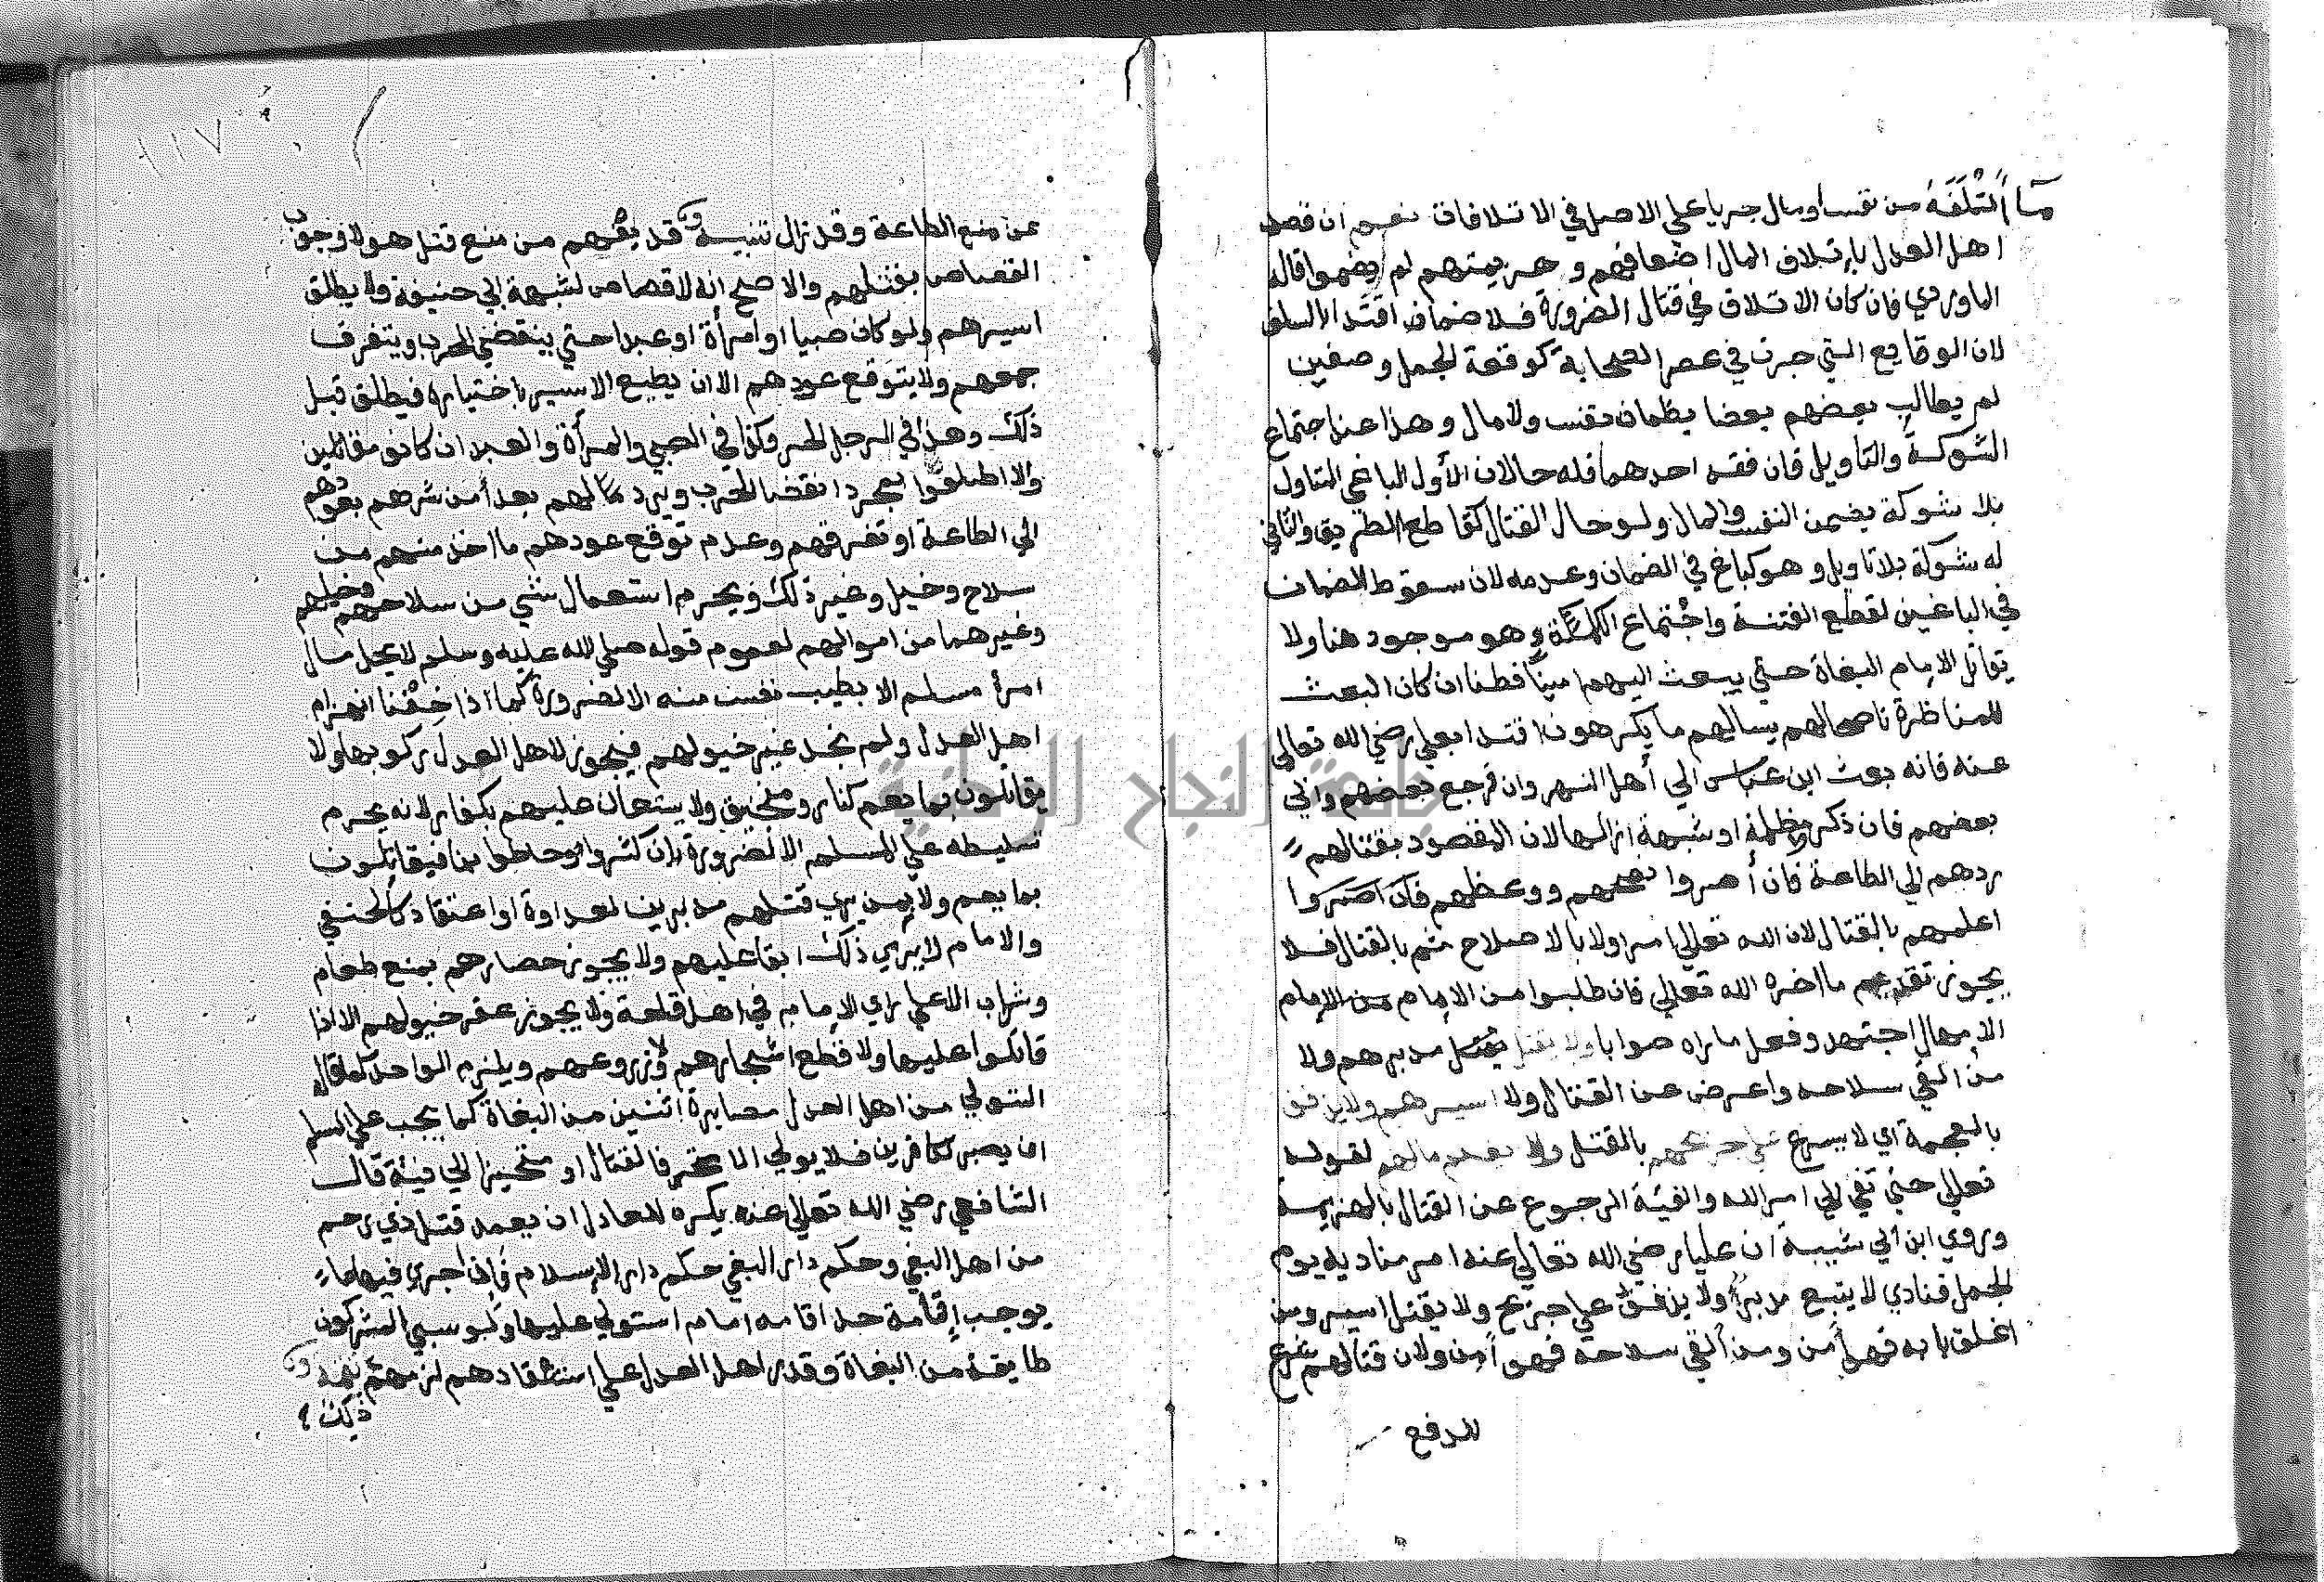 ما أتلفه من نفس أو مال جريا علي الاصل في الاتلافات نعم ان قصد
اهل العدل باتلاف المال اضعافهم وهزيمتهم لم يضمنوا قاله
الماوردي فان كان الاتلاف في قتال الضرورة فلا ضمان اقتدا بالسلف
لان الوقايع التي جرت في عصر الصحابة كوقعة الجمل وصفين
لم يطالب بعضهم بعضا بظمان نفس ولا مال وهذا عند اجتماع
الشوكة والتاويل فان فقد احدهما فله حالان الأول الباغي المتاول
بلا شوكة يضمن النفس والمال ولو حال القتال كقاطع الطريق والثاني
له شوكة بلا تاويل وهو كباغ في الضمان وعدمه لان سقوط الضمان
في الباغين لقطع الفتنة واجتماع الكلمة وهو موجود هنا ولا
يقاتل الامام البغاة حتي يبعث اليهم امينا فطنا ان كان البعث
للمناظرة ناصحا لهم يسالهم ما يكرهون اقتدا بعلي رضي الله تعالي
عنه فانه بعث ابن عباس الي أهل النهروان فرجع بعضهم وابي
بعضهم فان ذكروا مظلمة او شبهة ازالها لان المقصود بقتالهم
ردهم الي الطاعة فان أصروا نصحهم ووعظهم فان اصروا
اعلمهم بالقتال لان الله تعالي امر اولا بالاصلاح ثم بالقتال فلا
يجوز تقديم ما اخره الله تعالي فان طلبوا من الامام من الإمام
الامهال اجتهد وفعل ما راه صوابا ولا يقتل يقتل مدبرهم ولا
من القي سلاحه واعرض عن القتال ولا اسيرهم ولا يذفف
بالمعجمة اي لا يسرع علي جريحهم بالقتل ولا يغنم مالهم لقوله
تعالي حتي تفي الي امر الله والفيئة الرجوع عن القتال بالهزيمة
وروي ابن ابي شيبة ان عليا رضي الله تعالي عنه امر مناديه يوم
الجمل فنادي لا يتبع مدبر ولا يذفف علي جريح ولا يقتل اسير ومن
اغلق بابه فهو أمن ومن ألقي سلاحه فهو أمن ولان قتالهم شرع
للدفع
١١٧
عن منع الطاعة وقد زال تنبيه وقد يفهم من منع قتل هولا وجوب
القصاص بقتلهم والاصح انه لا قصاص لشبهة ابي حنيفة ولا يطلق
اسيرهم ولو كان صبيا او امرأة او عبدا حتي ينقضي الحرب ويتفرق
جمعهم ولا يتوقع عودهم الا ان يطيع الاسير باختياره فيطلق قبل
ذلك وهذا في الرجل الحر وكذا في الصبي والمرأة والعبد ان كانوا مقاتلين
والا اطلقوا بمجرد انقضا الحرب ويرد مالهم بعد أمن شرهم بعودهم
الي الطاعة او تفرقهم وعدم توقع عودهم ما اخذ منهم من
سلاح وخيل وغير ذلك ويحرم استعمال شي من سلاحهم وخيلهم
وغيرهما من اموالهم لعموم قوله صلي الله عليه وسلم لا يحل مال
امرئ مسلم الا بطيب نفس منه الا لضرورة كما اذا خفنا انهزام
اهل العدل ولم نجد غير خيولهم فيجوز لاهل العدل ركوبها ولا
يقاتلون بما يعم كنار ومنجنيق ولا يستعان عليهم بكفار لانه يحرم
تسليطه علي المسلم الا لضرورة بان كثروا واحاطوا بنا فيقاتلون
بما يعم ولا بمن يري قتلهم مدبرين لعداوة او اعتقاد كالحنفي
والامام لا يري ذلك ابقا عليهم ولا يجوز حصارهم بمنع طعام
وشراب الا علي راي الامام في اهل قلعة ولا يجوز عقر خيولهم الا اذا
قاتلوا عليها ولا قطع اشجارهم ولا زروعهم ويلزم الواحد كما قال
المتولي من اهل العدل مصابرة اثنين من البغاة كما يجب علي المسلم
ان يصبر لكافرين فلا يولي الا متحرفا لقتال او متحيزا الي فيئة قال
الشافعي رضي الله تعالي عنه يكره للعادل ان يعمد قتل ذي رحم
من اهل البغي وحكم دار البغي حكم دار الاسلام فان جري فيها ما
يوجب إقامة حد اقامه امام استولي عليها ولو سبي المشركون
طايفة من البغاة وقدر اهل العدل علي استنقادهم لزمهم
ذلك